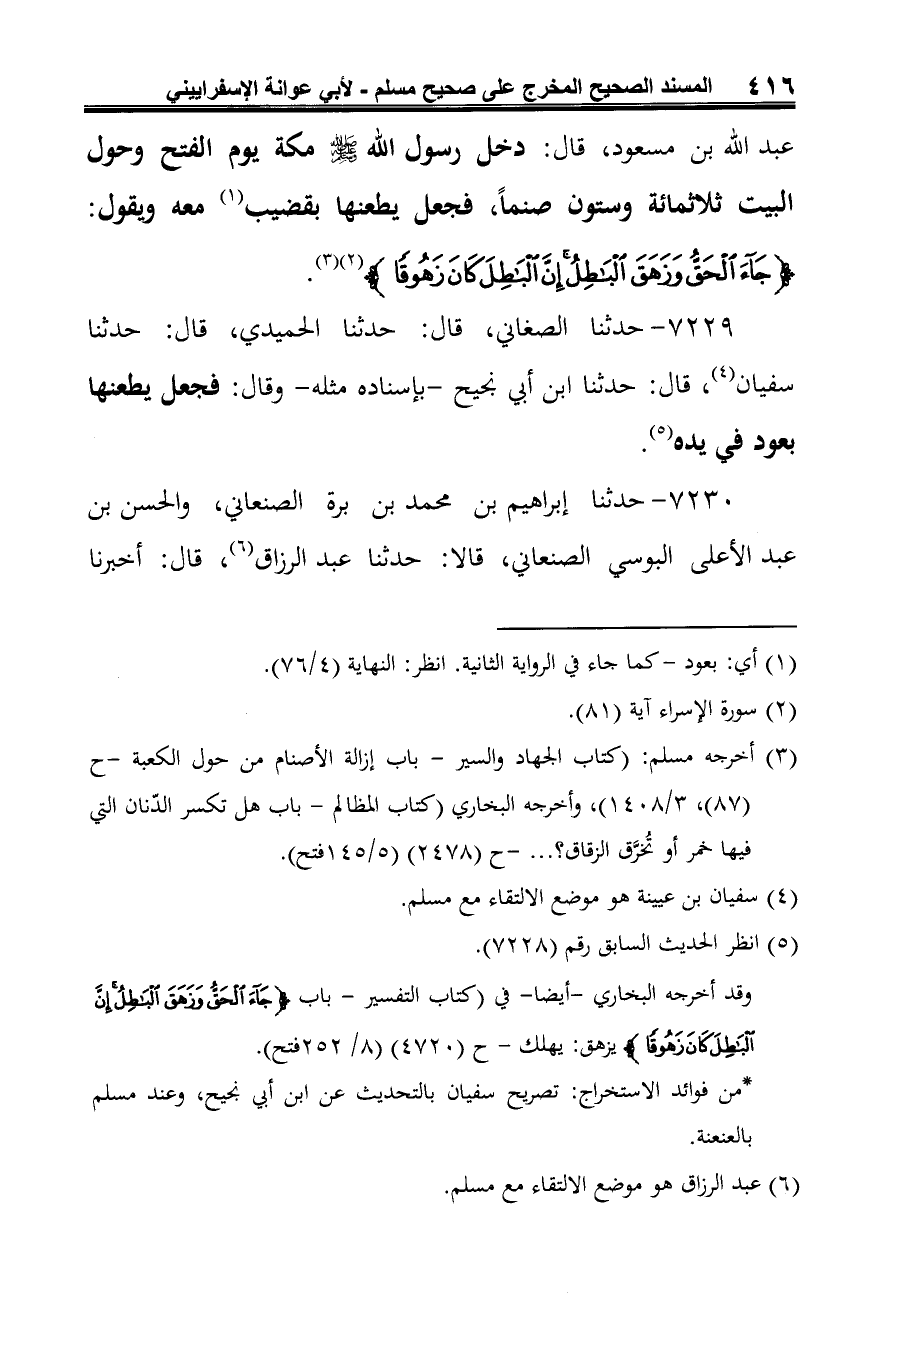 ٤١٦ المسند الصحيح المخرج على صحيح مسلم - لأبي عوانة الإسفراييني
عبد الله بن مسعود، قال: دخل رسول الله ﷺ مكة يوم الفتح وحول
البيت ثلاثمائة وستون صنماً، فجعل يطعنها بقضيب(١) معه ويقول:
﴿جَآءَ ٱلْحَقُّ وَزَهَقَ ٱلْبَٰطِلُ ۚ إِنَّ ٱلْبَٰطِلَ كَانَ زَهُوقًا﴾(٢)(٣).
٧٢٢٩- حدثنا الصغاني، قال: حدثنا الحميدي، قال: حدثنا
سفيان(٤)، قال: حدثنا ابن أبي نجيح -بإسناده مثله- وقال: فجعل يطعنها
بعود في يده(٥).
٧٢٣٠- حدثنا إبراهيم بن محمد بن برة الصنعاني، والحسن بن
عبد الأعلى البوسي الصنعاني، قالا: حدثنا عبد الرزاق(٦)، قال: أخبرنا
(١) أي: بعود -كما جاء في الرواية الثانية. انظر: النهاية (٧٦/٤).
(٢) سورة الإسراء آية (٨١).
(٣) أخرجه مسلم: (كتاب الجهاد والسير - باب إزالة الأصنام من حول الكعبة -ح
(٨٧)، ١٤٠٨/٣)، وأخرجه البخاري (كتاب المظالم - باب هل تكسر الدّنان التي
فيها خمر أو تُخرَّق الزقاق؟... -ح (٢٤٧٨) (١٤٥/٥فتح).
(٤) سفيان بن عيينة هو موضع الالتقاء مع مسلم.
(٥) انظر الحديث السابق رقم (٧٢٢٨).
وقد أخرجه البخاري -أيضا- في (كتاب التفسير - باب ﴿جَآءَ ٱلْحَقُّ وَزَهَقَ ٱلْبَٰطِلُ ۚ إِنَّ
ٱلْبَٰطِلَ كَانَ زَهُوقًا﴾ يزهق: يهلك - ح (٤٧٢٠) (٨/ ٢٥٢فتح).
*من فوائد الاستخراج: تصريح سفيان بالتحديث عن ابن أبي نجيح، وعند مسلم
بالعنعنة.
(٦) عبد الرزاق هو موضع الالتقاء مع مسلم.